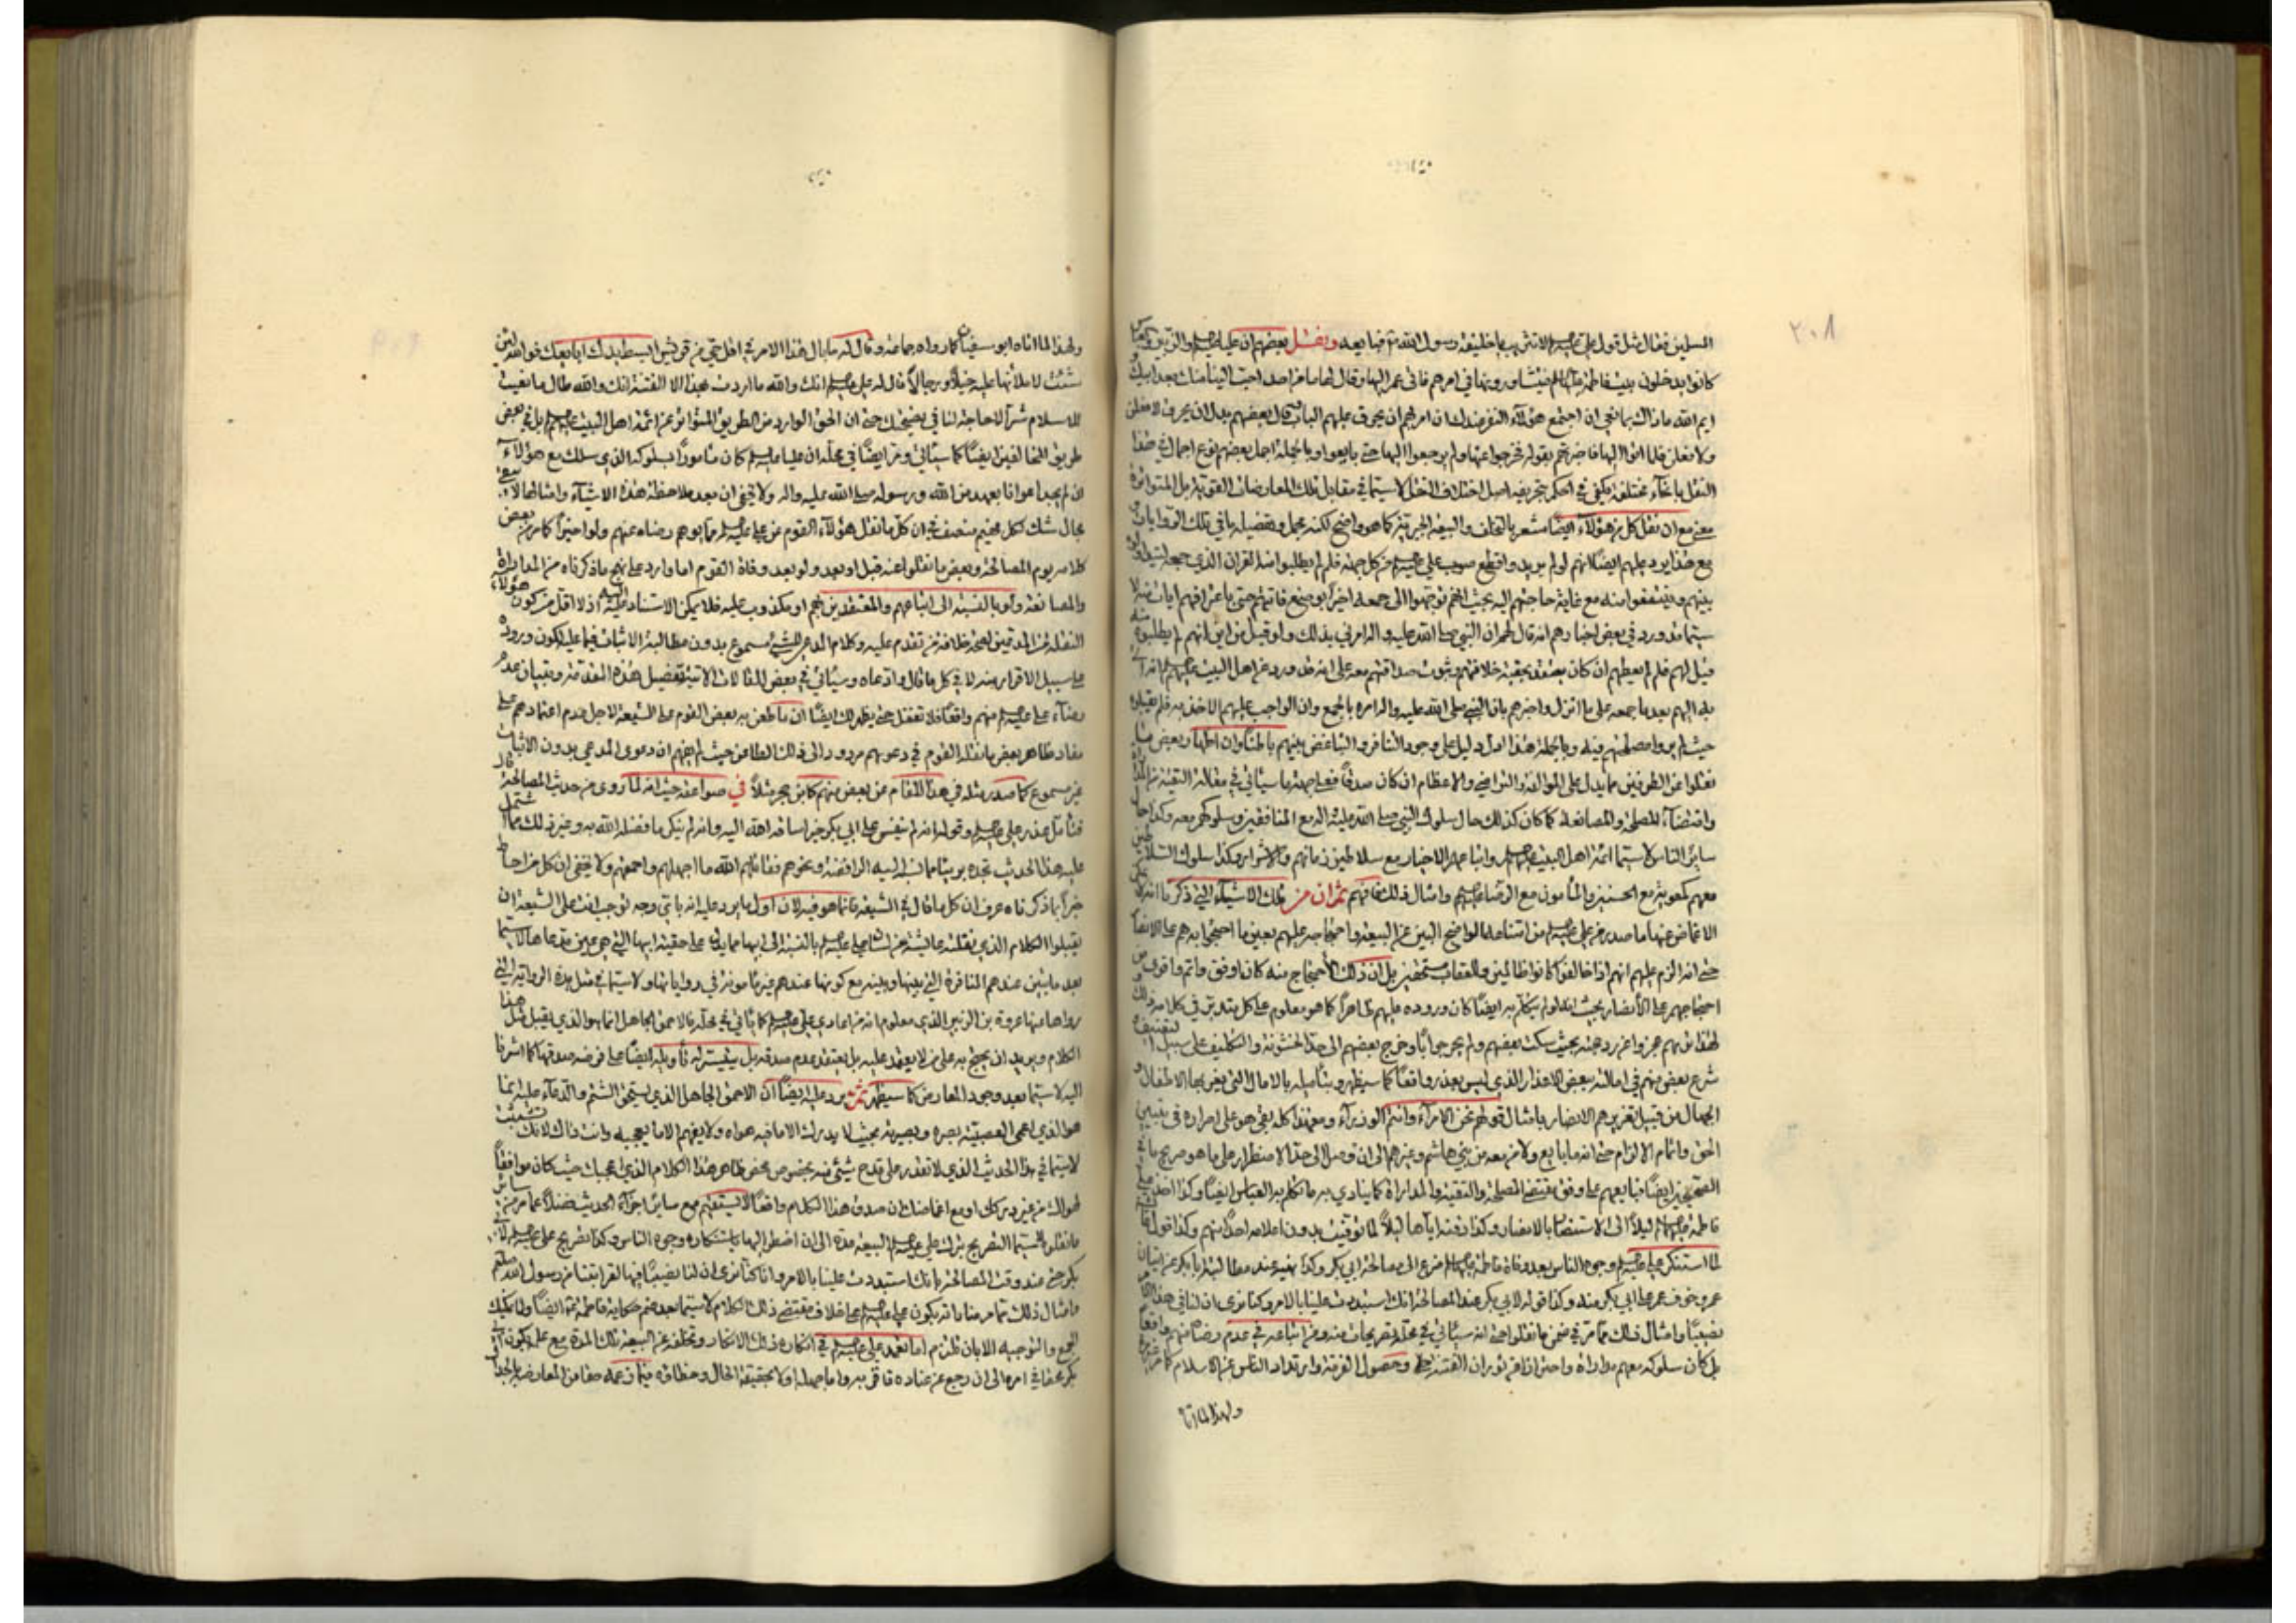 ٢٠٨
المسلمين فقال مثل قول علي لا تثريب يا خليفة رسول الله فبايعه ونقل بعضهم ان عليا والزبير
كانوا يدخلون بيت فاطمة فيشاورونها في امرهم فاتى عمر اليها وقال لها ما من احد احب الينا منك بعد ابيك
ايم الله ما ذاك بمانعي ان اجتمع هؤلاء النفر عندك ان امر بهم ان يحرق عليهم الباب وقال بعضهم بدل ان يحرق لافعلن
ولافعلن فلما اتوا اليها فاخبرتهم بقوله فخرجوا عنها ولم يرجعوا اليها حتى بايعوا وبالجملة اجمل بعضهم نوع اجمال في هذا
النقل بانحاء مختلفة يكفي في الحكم اصل اختلاف النقل لا سيما في مقابل تلك المعارضات القوية بل المتواترة
معنى مع ان نقل كل من هؤلاء ايضا مشعر بالتخلف والبيعة الجبرية كما هو واضح لكنه مجمل وتفصيله باقي تلك الروايات
مع هذا يرد عليهم ايضا لانهم لو لم يريدوا قطع علي من كل جهة فلم لم يطلبوا منه القران الذي جمعه
بينهم وينتفعوا منه مع غاية حاجتهم اليه بحيث انهم توجهوا الى جمعه اخيرا
سيما قد ورد في بعض اخبارهم انه قال لهم ان النبي صلى الله عليه واله امرني بذلك ولو قيل لم يطلبوه منه
قيل لهم فلم لم يعطهم ان كان يعتقد بحقية خلافتهم وثبوت صداقتهم معه على انه قد ورد عن اهل البيت انه
اليهم بعد ما جمعه على ما انزل واخبرهم بان النبي صلى الله عليه واله امره بالجمع وان الواجب عليهم الاخذ به فلم يقبلوه
حيث لم يروا مصلحتهم فيه وبالجملة هذا ادل دليل على وجود التنافر والتباغض بينهم باطنا وان اظهار بعض ما
نقلوا عن الطرفين مما يدل على الموالفة والتراضي والاعظام ان كان صدقا فعلى جهة ما سيأتي في مقالة التقية من المداراة
واقتضاء المصلحة والمصانعة كما كان كذلك حال سلوك النبي صلى الله عليه واله مع المنافقين وسلوكهم معه وكذا حال
سائر الناس لا سيما ائمة اهل البيت واتباعهم الاخيار مع سلاطين زمانهم والاشرار وكذا سلوك السلاطين
معهم كمعوية مع الحسنين والمأمون مع الرضا وامثال ذلك فافهم ثم ان من تلك الاشياء التي ذكرنا
الاغماض عنها ما صدر من علي من امتناعه الواضح البين عن البيعة واحتجاجه عليهم بعين ما احتجوا به هم على الانصار
حتى انه الزم عليهم انهم اذا خالفوا كانوا ظالمين وللعقاب مستحقين بل ان ذلك الاحتجاج منه كان اوفق واتم واقوى من
احتجاجهم على الانصار بحيث انه لو لم يتكلم به ايضا كان وروده عليهم ظاهرا كما هو معلوم على كل متدبر في كلامه
لهذا انهم عجزوا عن رده بحيث سكت بعضهم ولم يحر جوابا وخرج بعضهم الى حد الخشونة والتكليف على سبيل
شرع بعض منهم في امالته ببعض الاعذار الذي ليس بعذر واقعا كما سيظهر وبتأميله بالامال التي يغر بها الاطفال و
الجهال من قبيل تغريرهم الانصار بامثال قولهم نحن الامراء وانتم الوزراء ومع هذا كله بقي هو على اصراره في تبيين
الحق واتمام الالزام حتى انه ما بايع ولا من معه من بني هاشم وغيرهم الى ان وصل الى حد الاضطرار على ما هو صريح ما في
الصحيحين ايضا فبايعهم على وفق مقتضى المصلحة والتقية والمداراة كما ينادي به ما تكلم به العباس ايضا وكذا
فاطمة ليلا الى الاستنصار بالانصار وكذا دفنه اياها ليلا لما توفيت بدون اعلامه احدا منهم وكذا قولهم
لما استنكر علي وجوه الناس بعد وفاة فاطمة ضرع الى مصالحة ابي بكر وكذا عند مطالبته ابا بكر عن اتيان
عمر خوف عمر على ابي بكر منه وكذا قوله لابي بكر عند المصالحة انك استبددت علينا بالامر وكنا نرى ان لنا في هذا الامر
نصيبا وامثال ذلك مما مر في ضمن ما نقلوا حتى انه سيأتي في محله تصريحات منه ومن اتباعه في عدم رضاه منهم واقعا
بل كان سلوكه معهم مداراة واحترازا عن ثوران الفتنة وحصول الفرقة وارتداد الناس عن الاسلام كما مر
ولهذا لما اتاه
ولهذا لما اتاه ابو سفيان كما رواه جماعة وقال له ما بال هذا الامر في اقل حي من قريش ابسط يدك ابايعك فوالله لئن
شئت لاملأنها عليه خيلا ورجالا قال له علي انك والله ما اردت بهذا الا الفتنة انك والله طال ما بغيت
للاسلام شرا لا حاجة لنا في نصيحتك حتى ان الحق الوارد من الطريق المتواتر عن ائمة اهل البيت بل في بعض
طريق المخالفين ايضا كما سيأتي ومر ايضا في محله ان عليا كان مأمورا بسلوكه الذي سلك مع هؤلاء
ان لم يجد اعوانا بعهد من الله ورسوله صلى الله عليه واله ولا يخفى ان بعد ملاحظة هذه الاشياء وامثالها لا يبقى
مجال شك لكل فهيم منصف في ان كل ما نقل هؤلاء القوم عن علي مما يوهم رضاه عنهم ولو اخيرا كما مر من بعض
كلامه يوم المصالحة وبعض ما نقلوا عنه قبل او بعد ولو بعد وفاة القوم اما وارد على نهج ما ذكرناه من المداراة
والمصانعة ولو بالنسبة الى اتباعهم والمعتقدين بهم او مكذوب عليه فلا يمكن الاستناد اليه اذ لا اقل من كون هؤلاء
النقلة من المدعين لصحة خلافة من تقدم عليه وكلام المدعي ليس بمسموع بدون مطالبة الاثبات فيما عليه لكون وروده
على سبيل الاقرار منه لا في كل ما قال وادعاه وسيأتي في بعض المقالات الاتية تفصيل هذه المقدمة وتبيان عدم
رضاء علي منهم واقعا فلا تغفل حتى يظهر لك ايضا ان ما طعن به بعض القوم على الشيعة لاجل عدم اعتمادهم على
مفاد ظاهر بعض ما نقله القوم في دعوهم مردود الى ذلك الطاعن حيث لم يفهم ان دعوى المدعي بدون الاثبات
غير مسموع كما صدر مثله في هذا المقام عن بعض منهم كابن حجر مثلا في صواعقه حيث انه لما روى من حديث المصالحة قال
فتأمل عذر علي وقوله انه لم ينفس على ابي بكر خيرا ساقه الله اليه وانه لم ينكر ما فضله الله به وغير ذلك مما اشتمل
عليه هذا الحديث تجده بريئا مما نسب اليه الرافضة ونحوهم فقاتلهم الله ما اجهلهم واحمقهم ولا يخفى ان كل من احاط
خبرا بما ذكرناه عرف ان كل ما قال في الشيعة فانما هو فيه لان اول ما يرد عليه انه باي وجه لوجب انت على الشيعة ان
يقبلوا الكلام الذي نقلته عايشة عن لسان علي بالنسبة الى ابيها مما يدل على حقية ابيها التي هي عين مدعاها لا سيما
بعد ما تبين عندهم المنافرة التي بينها وبينه مع كونها عندهم غير مأمونة في رواياتها ولا سيما في مثل هذه الرواية التي
رواها عنها عروة بن الزبير الذي معلوم انه من اعادي علي كما يأتي في محله فالاحمق الجاهل انما هو الذي يقبل مثل هذا
الكلام ويريد ان يحتج به على من لا يعتمد عليه بل يعتقد عدم صدقه بل يتيسر له تأويله ايضا على فرض صدقها كما اشرنا
اليه لا سيما بعد وجود المعارض كما سيظهر ثم يرد عليه ايضا ان الاحمق الجاهل الذي يستحق الشتم والدعاء عليه انما
هو الذي اعمى العصبية بصره وبصيرته بحيث لا يدرك الا ما فيه هواه ولا يفهم الا ما يعجبه وانت ذاك لانك تشبثت
لا سيما في هذا الحديث الذي لا تقدر على قدح شيء منه بخصوص محض ظاهر هذا الكلام الذي اعجبك حيث كان موافقا
لهواك من غير دركك او مع اغماضك ان صدق هذا الكلام واقعا لا يستقيم مع سائر اجزاء الحديث فضلا عما مر من سائر
ما نقلوه لا سيما التصريح بترك علي البيعة مدة الى ان اضطر اليها باستنكاره وجوه الناس وكذا تصريح علي لابي
بكر حتى عند وقت المصالحة بانك استبددت علينا بالامر وانا كنا نرى ان لنا نصيبا فيها لقرابتنا من رسول الله
وامثال ذلك مما مر منا مانه يكون علي على خلاف مقتضى ذلك الكلام لا سيما بعد ضم حكاية فاطمة ايضا ولا يمكنك
الجمع والتوجيه الا بان تلتزم اما تعمد علي في انكاره ذلك الانكار وتخلفه عن البيعة تلك المدة مع علمه بكون ابي
بكر محقا في امره الى ان رجع عن عناده فاقر به واما جهله اولا بحقيقة الحال وخطاؤه فيما زعمه حقا من المعارضة